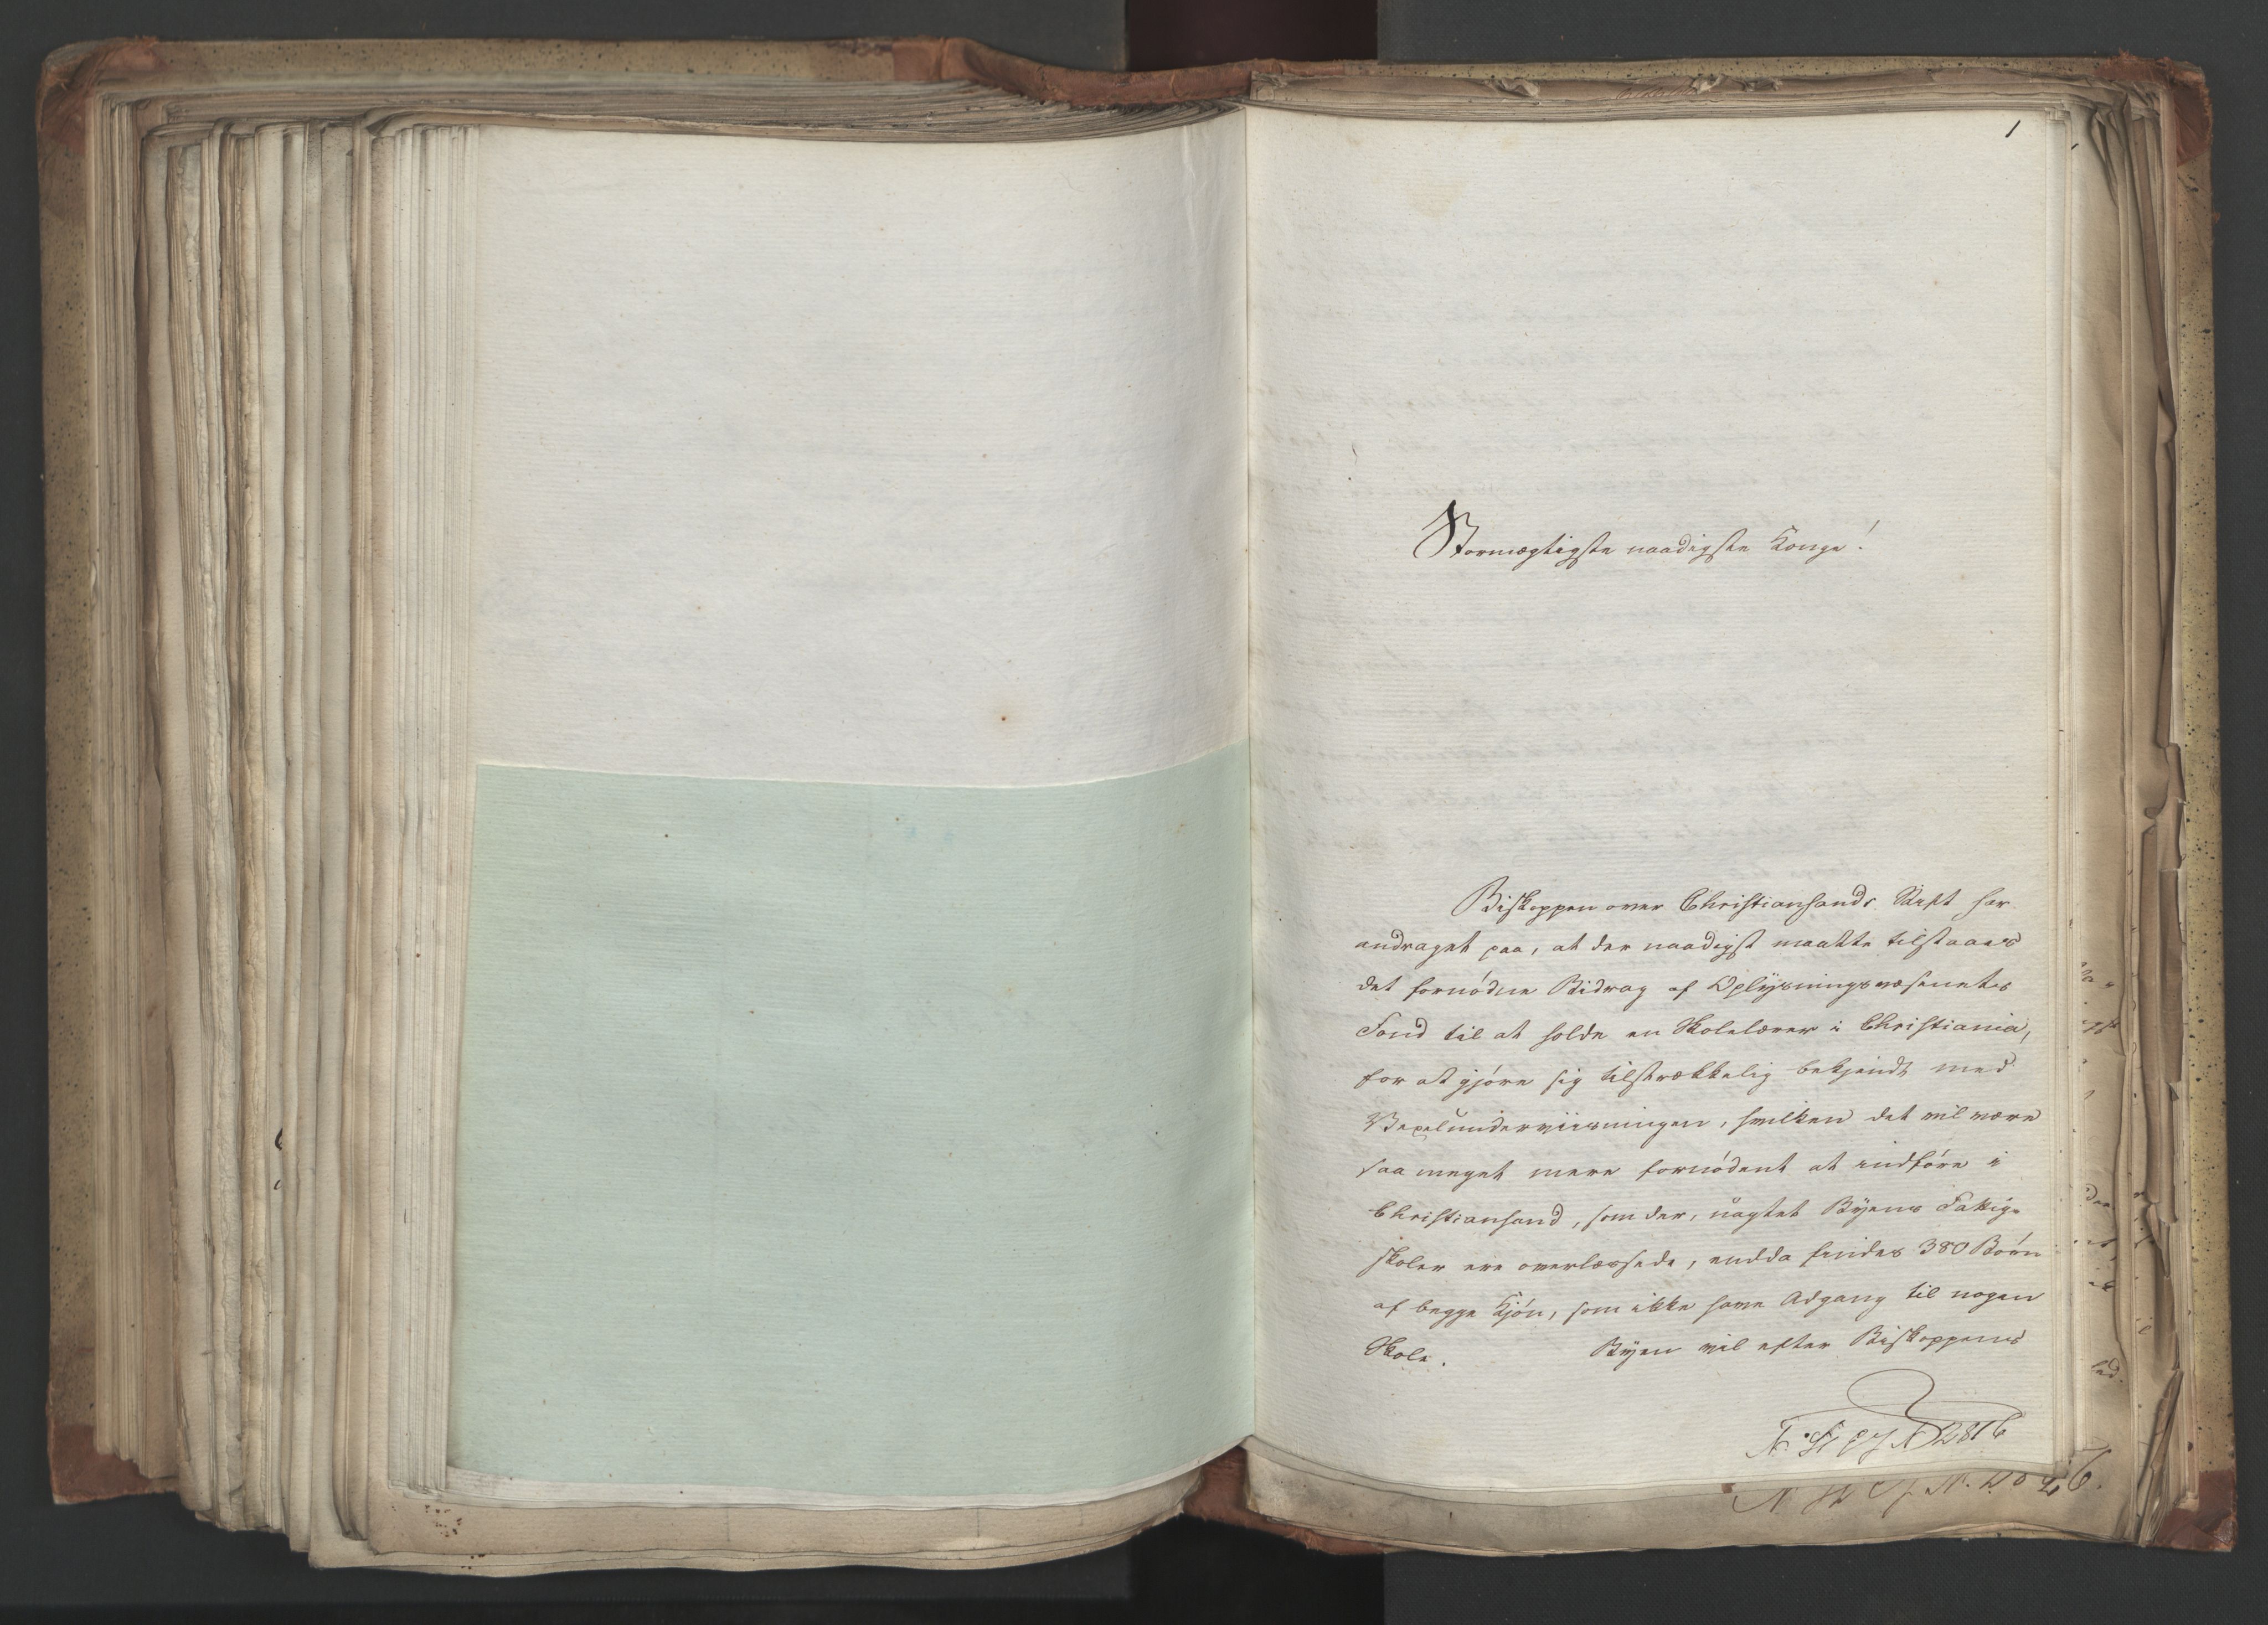 1
Stormægtigste naadigste Konge!
Biskoppen over Christiansands Stift har
andraget paa, at der naadigst maatte tilstaaes
det fornödne Bidrag af Oplysningsvæsenets
Fond til at holde en Skolelærer i Christiania,
for at gjöre sig tilstrækkelig bekjendt med
Vexelunderviisningen, hvilken det vil være
saa meget mere fornödent at indföre i
Christiansand, som der, uagtet Byens Fattig-
skoler ere overlæssede, endda findes 380 Börn
af begge Kjön, som ikke have Adgang til nogen
Skole. Byen vil efter Biskoppens